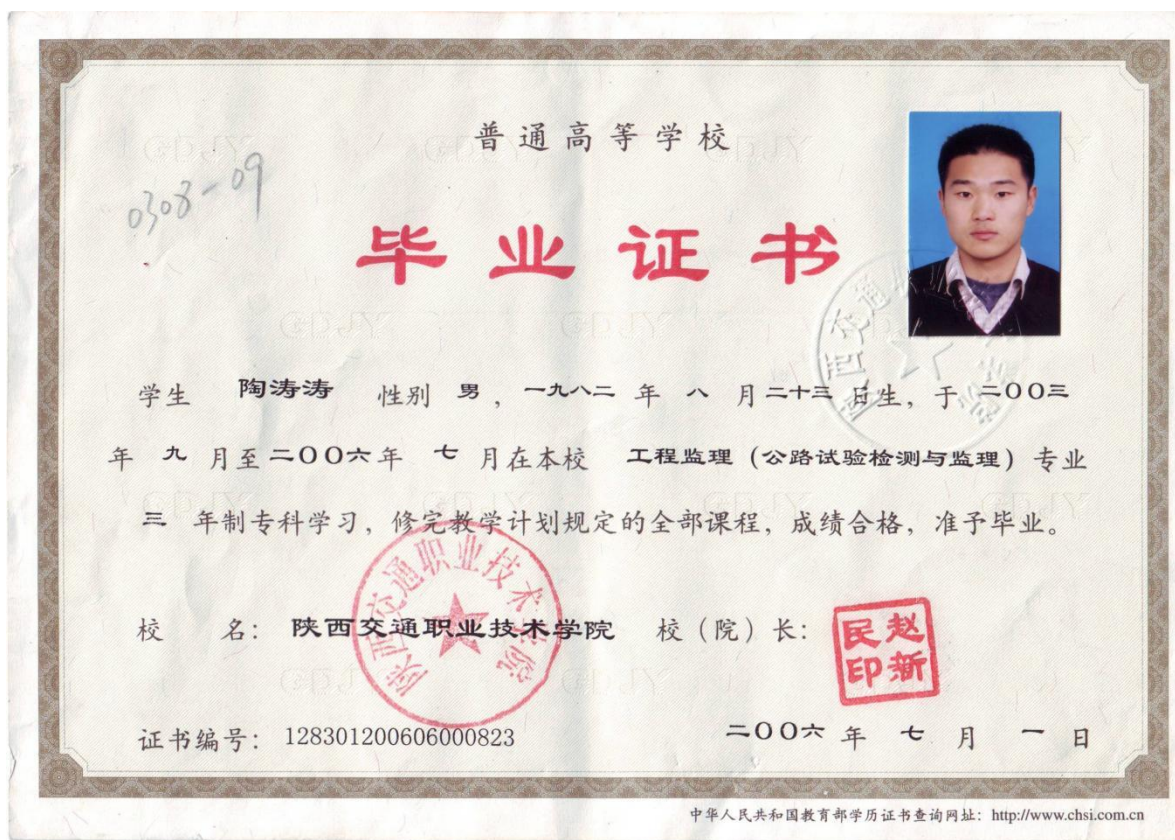 普通高等学校
0308-09
毕业证书
学生 陶涛涛 性别 男，一九八二 年 八 月二十三日生，于 二〇〇三
年 九 月至二〇〇六年 七 月在本校 工程监理（公路试验检测与监理）专业
三 年制专科学习，修完教学计划规定的全部课程，成绩合格，准予毕业。
陕西交通职业技术学院
校 名：陕西交通职业技术学院 校（院）长：
赵新民印
证书编号：128301200606000823 二〇〇六 年 七 月 一 日
中华人民共和国教育部学历证书查询网址：http://www.chsi.com.cn